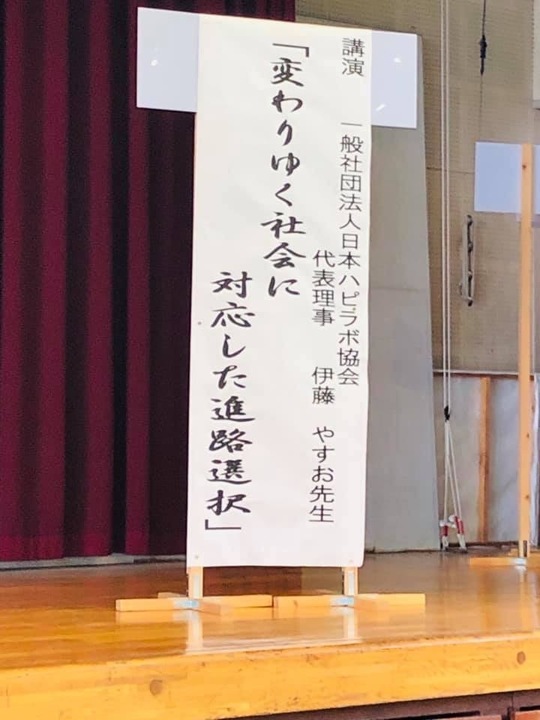 講演 一般社団法人日本ハピラボ協会
代表理事 伊藤 やすお先生
「変わりゆく社会に
対応した進路選択」